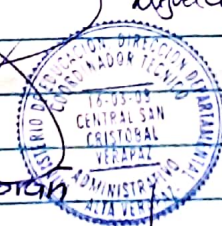 MINISTERIO DE EDUCACIÓN DIRECCIÓN DEPARTAMENTAL
COORDINADOR TÉCNICO
16-03-09
CENTRAL SAN
CRISTOBAL
VERAPAZ
ADMINISTRATIVO
ALTA VERAPAZ